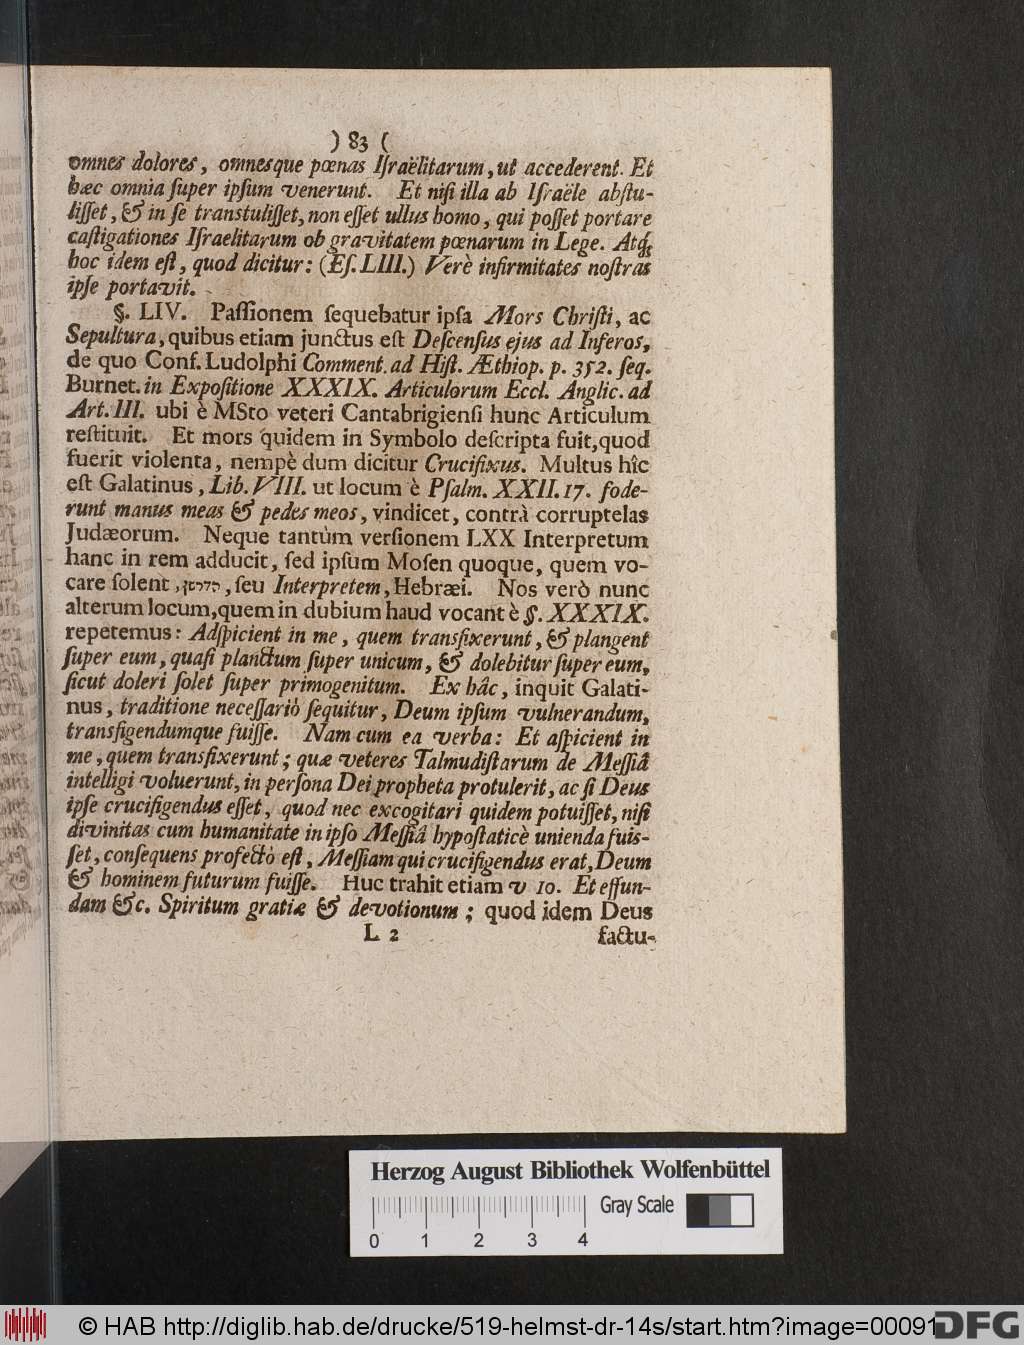 ) 83 (
omnes dolores, omnesque pœnas Iſraëlitarum, ut accederent. Et
hæc omnia ſuper ipſum venerunt. Et niſi illa ab Iſraële abſtu-
liſſet, & in ſe tranſtuliſſet, non eſſet ullus homo, qui poſſet portare
caſtigationes Iſraelitarum ob gravitatem pœnarum in Lege. Atq́;
hoc idem eſt, quod dicitur: (Eſ. LIII.) Verè infirmitates noſtras
ipſe portavit.
§. LIV. Paſſionem ſequebatur ipſa Mors Chriſti, ac
Sepultura, quibus etiam junctus eſt Deſcenſus ejus ad Inferos,
de quo Conf. Ludolphi Comment. ad Hiſt. Æthiop. p. 352. ſeq.
Burnet. in Expoſitione XXXIX. Articulorum Eccl. Anglic. ad
Art. III. ubi è MSto veteri Cantabrigienſi hunc Articulum
reſtituit. Et mors quidem in Symbolo deſcripta fuit, quod
fuerit violenta, nempè dum dicitur Crucifixus. Multus hîc
eſt Galatinus, Lib. VIII. ut locum è Pſalm. XXII. 17. fode-
runt manus meas & pedes meos, vindicet, contrà corruptelas
Judæorum. Neque tantùm verſionem LXX Interpretum
hanc in rem adducit, ſed ipſum Moſen quoque, quem vo-
care ſolent, ſeu Interpretem, Hebræi. Nos verò nunc
alterum locum, quem in dubium haud vocant è §. XXXIX.
repetemus: Adſpicient in me, quem transfixerunt, & plangent
ſuper eum, quaſi planctum ſuper unicum, & dolebitur ſuper eum,
ſicut doleri ſolet ſuper primogenitum. Ex hâc, inquit Galati-
nus, traditione neceſſariò ſequitur, Deum ipſum vulnerandum,
transfigendumque fuiſſe. Nam cum ea verba: Et aſpicient in
me, quem transfixerunt; quæ veteres Talmudiſtarum de Meſſiâ
intelligi voluerunt, in perſona Dei propheta protulerit, ac ſi Deus
ipſe crucifigendus eſſet, quod nec excogitari quidem potuiſſet, niſi
divinitas cum humanitate in ipſo Meſſiâ hypoſtaticè unienda fuiſ-
ſet, conſequens profectò eſt, Meſſiam qui crucifigendus erat, Deum
& hominem futurum fuiſſe. Huc trahit etiam v 10. Et effun-
dam &c. Spiritum gratiæ & devotionum; quod idem Deus
L 2 factu-
Herzog August Bibliothek Wolfenbüttel
Gray Scale
0 1 2 3 4
© HAB http://diglib.hab.de/drucke/519-helmst-dr-14s/start.htm?image=00091
DFG